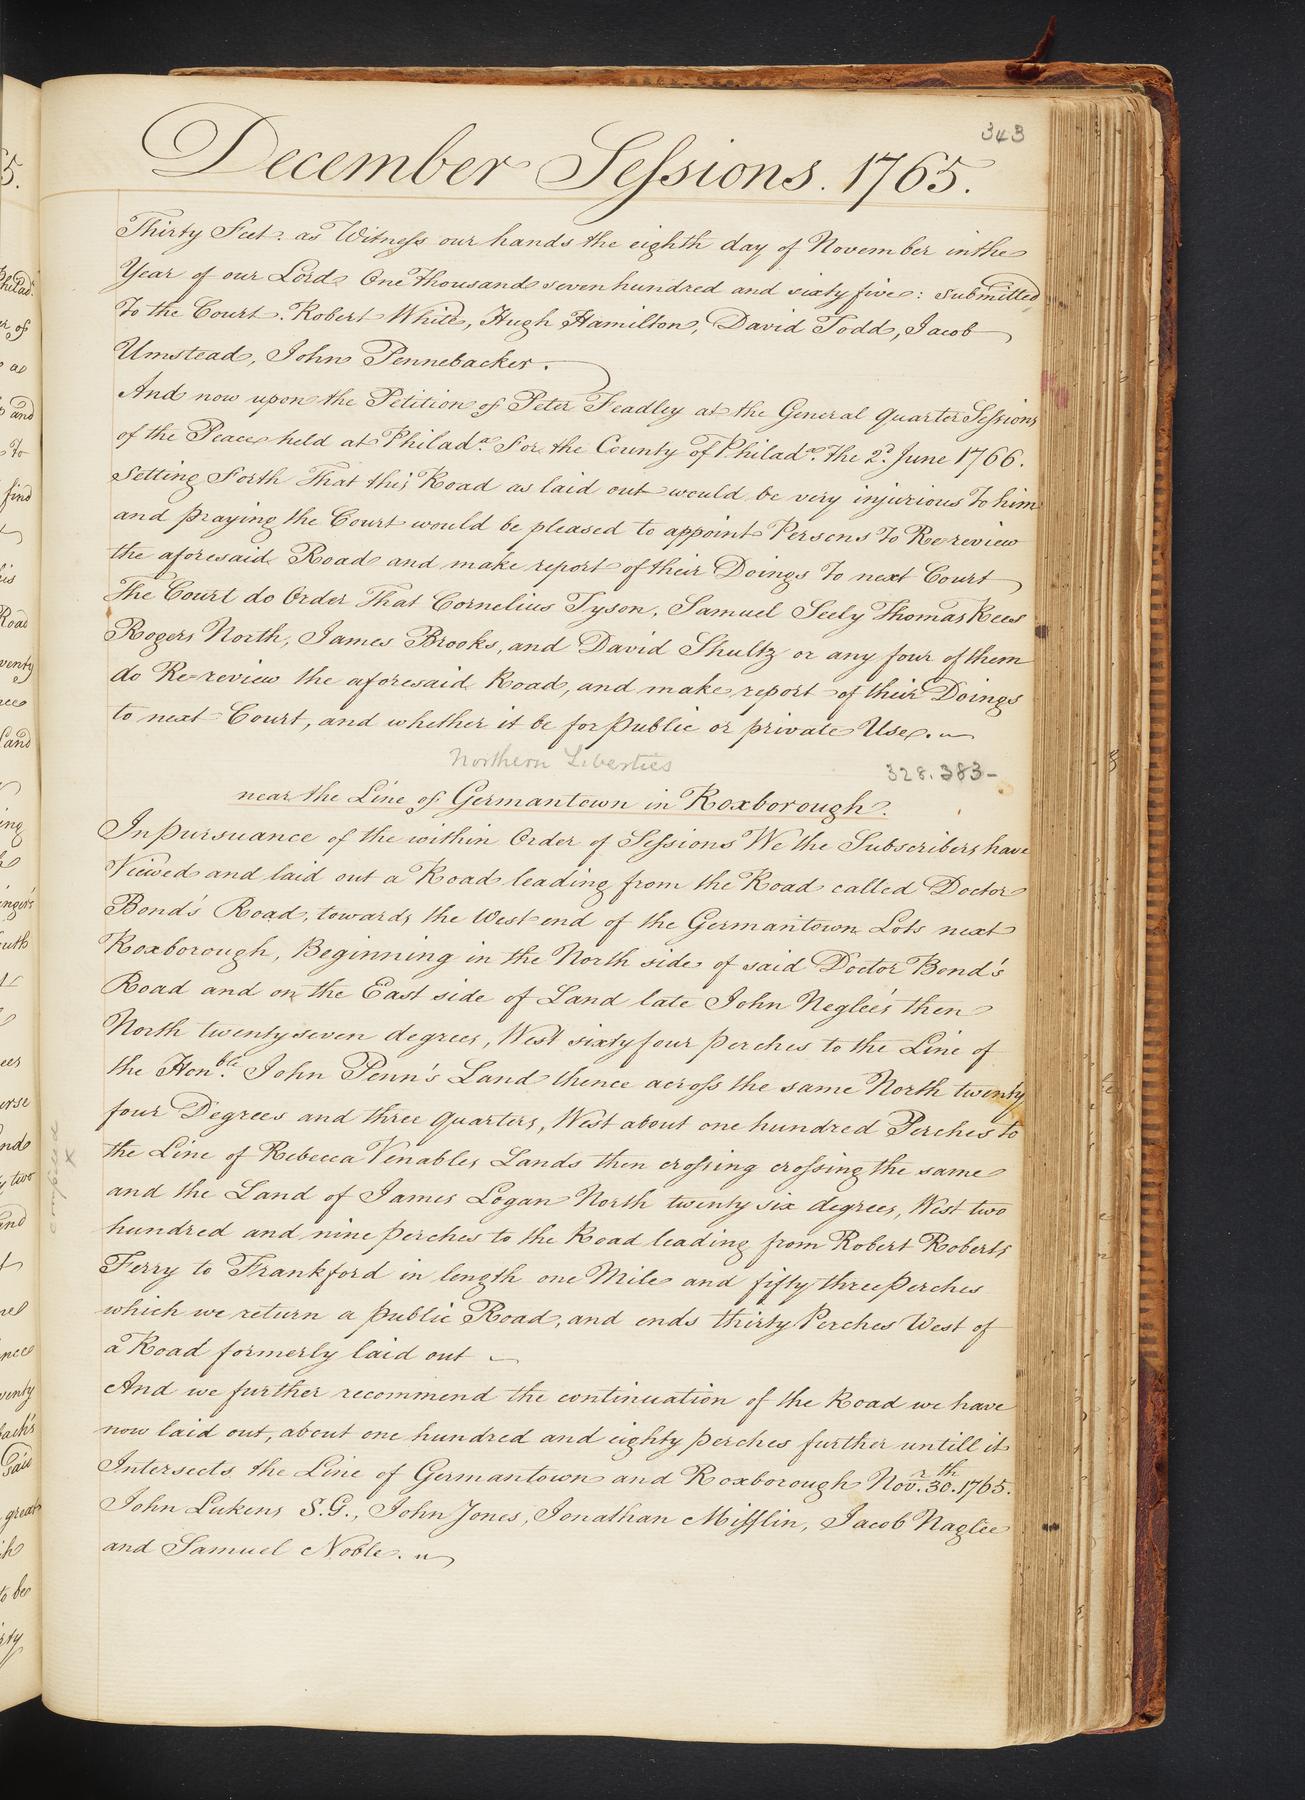 343
December Sessions. 1765.
Thirty Feet: as Witness our hands the eighth day of November in the
Year of our Lord One thousand seven hundred and sixty five: submitted
To the Court. Robert White, Hugh Hamilton, David Todd, Jacob
Umstead, John Pennebacker.
And now upon the Petition of Peter Feadley at the General Quarter Sessions
of the Peace held at Philada. For the County of Philada. the 2d. June 1766.
Setting Forth That this Road as laid out would be very injurious To him
and praying the Court would be pleased to appoint Persons To Re-review
the aforesaid Road and make report of their Doings To next Court
The Court do Order That Cornelius Tyson, Samuel Seely Thomas Rees
Rogers North, James Brooks, and David Shultz or any four of them
do Re=review the aforesaid Road, and make report of their Doings
to next Court, and whether it be for public or private Use.
Northern Liberties
328. 383-
near the Line of Germantown in Roxborough.
In pursuance of the within Order of Sessions We the Subscribers have
Viewed and laid out a Road leading from the Road called Doctor
Bond's Road, towards the West end of the Germantown Lots next
Roxborough, Beginning in the North side of said Doctor Bond's
Road and on the East side of Land late John Neglee's then
North twenty seven degrees, West sixty four perches to the Line of
the Honble. John Penn's Land thence across the same North twenty
four Degrees and three quarters, West about one hundred Perches to
the Line of Rebecca Venables Lands then crossing crossing the same
and the Land of James Logan North twenty six degrees, West two
hundred and nine perches to the Road leading from Robert Roberts
Ferry to Frankford in length one Mile and fifty three perches
which we return a public Road, and ends thirty Perches West of
a Road formerly laid out
And we further recommend the continuation of the Road we have
now laid out, about one hundred and eighty perches further untill it
Intersects the Line of Germantown and Roxborough Novr. 30th. 1765.
John Lukens S.G., John Jones, Jonathan Mifflin, Jacob Naglee
and Samuel Noble.